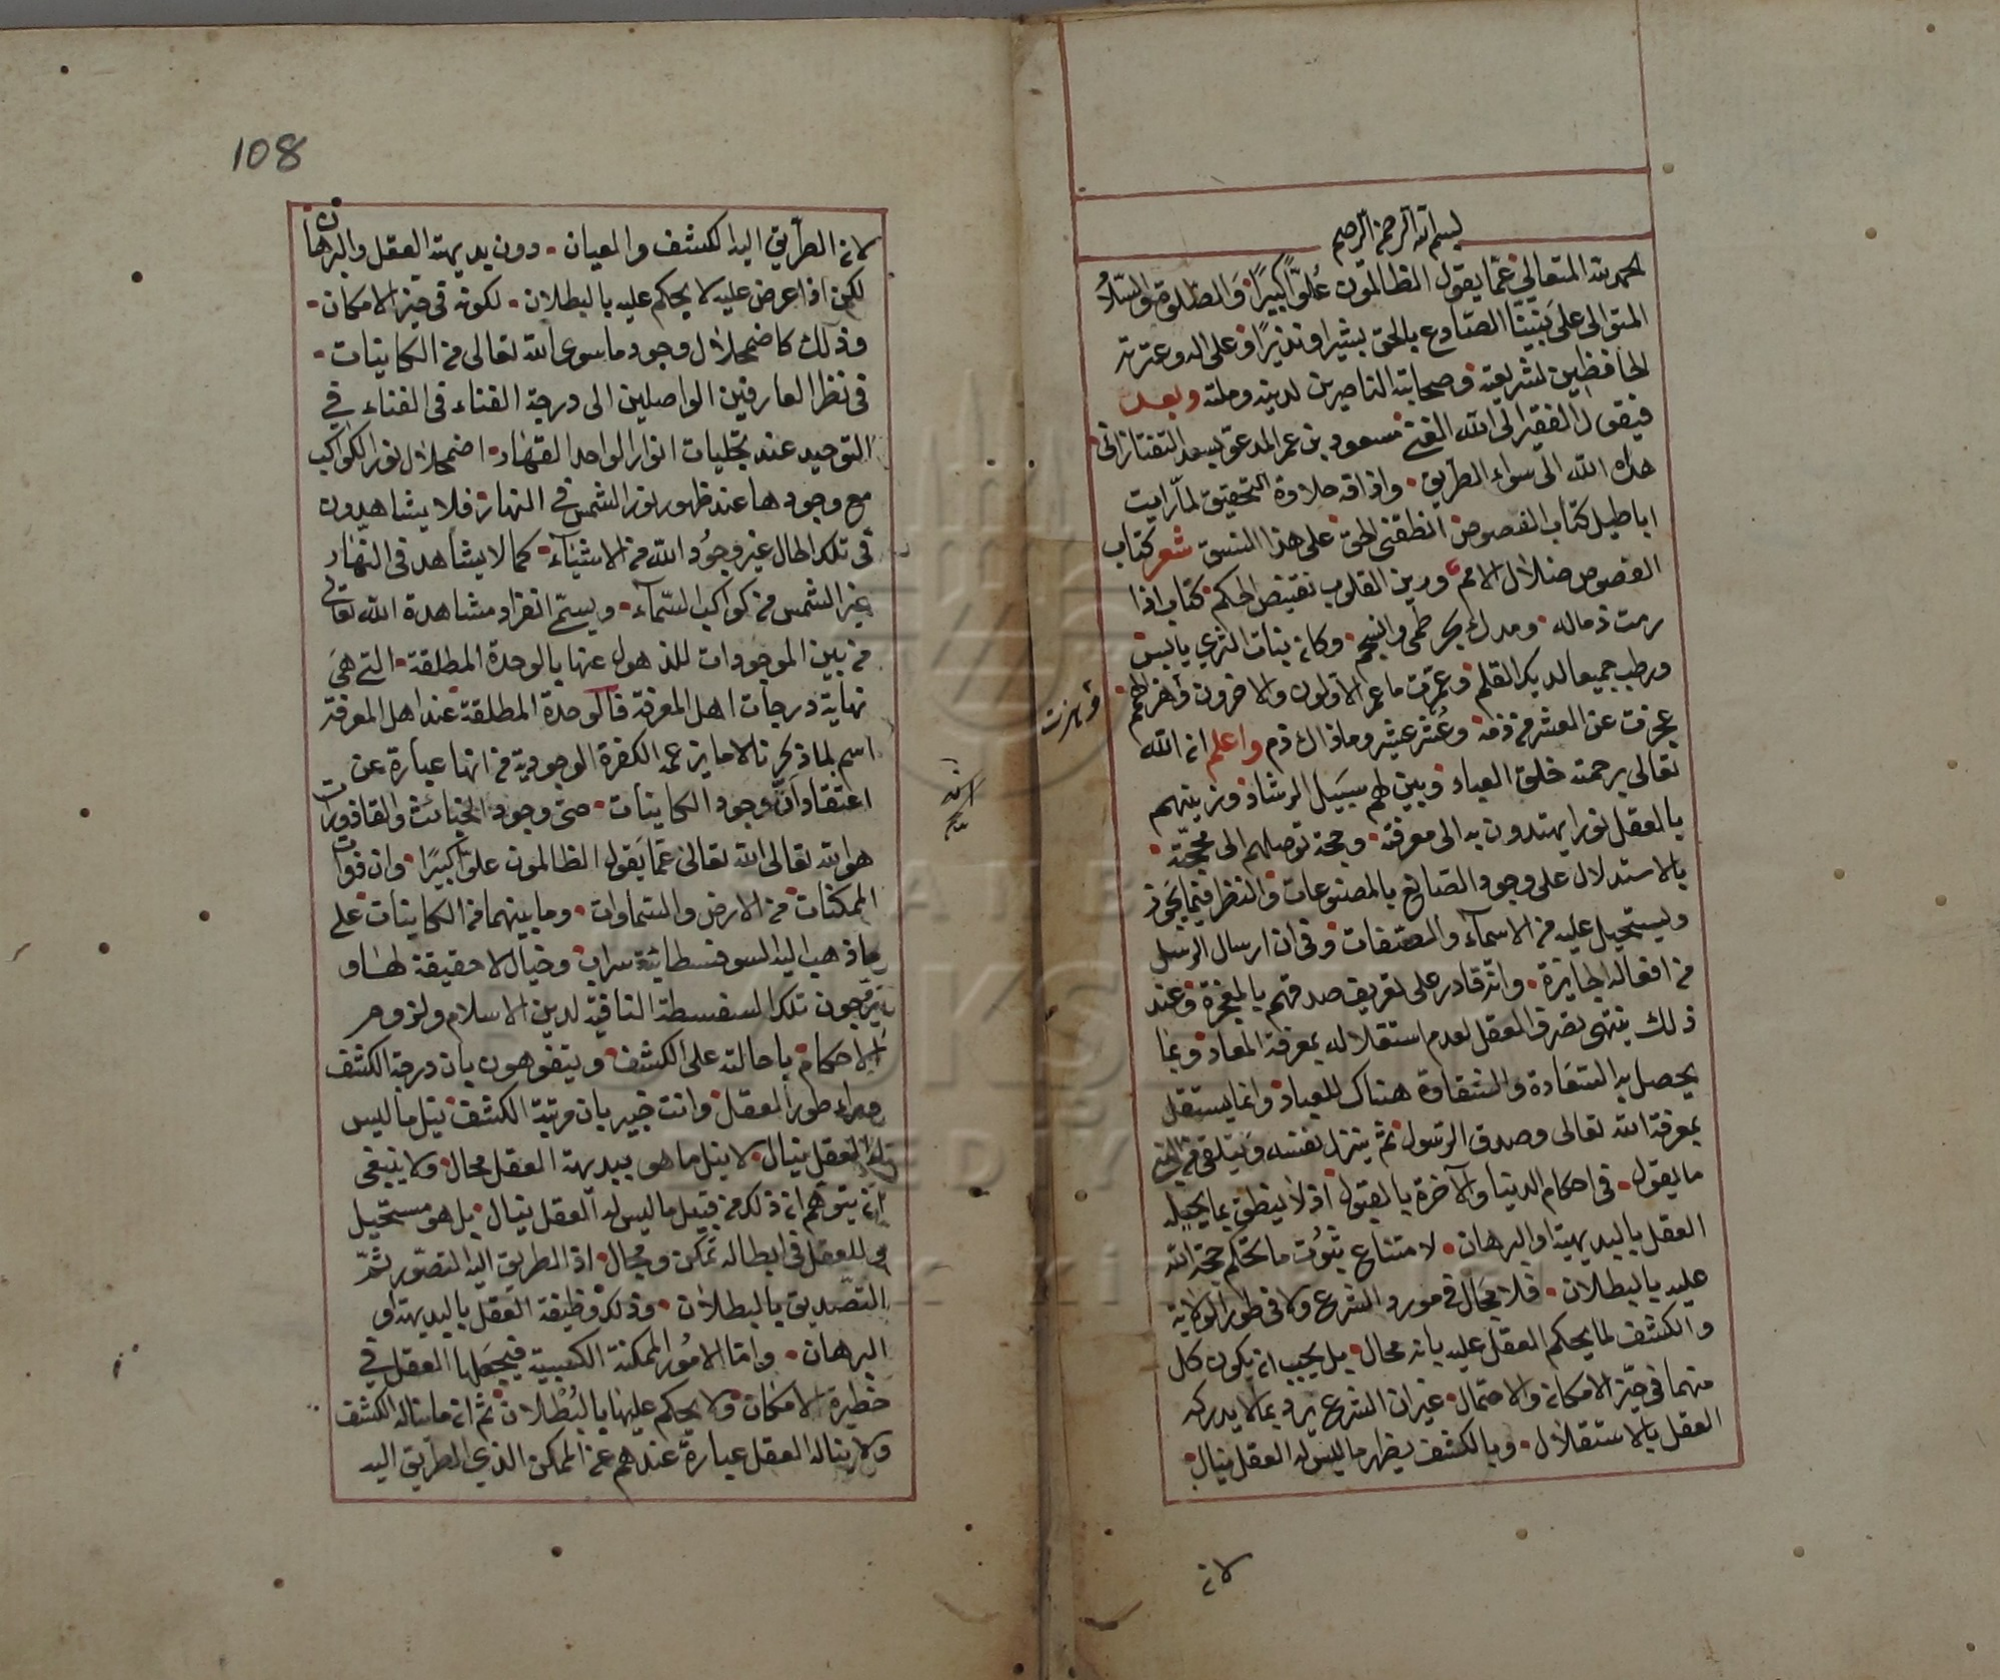 بسم الله الرحمن الرحيم
الحمد لله المتعالى عما يقول الظالمون علوّا كبيرًا والصلوة والسّلام
المتوالى على نبينا الصّادع بالحق بشيرا ونذيرًا وعلى اله وعترته
الحافظين لشريعته وصحابته الناصرين لدينه وملته وبعد
فيقول الفقير الى الله الغنى مسعود بن عمر المدعو بسعد التفتازانى
هداه الله الى سواء الطريق واذاقه حلاوة التحقيق لمّا رايت
اباطيل كتاب الفصوص انطقنى الحق على هذا النسق شعر كتاب
الفصوص ضلال الامم ورين القلوب نقيض الحكم كتاب اذا
رمت ذما له ومدك بحر طمى وانسجم وكان نبات الثرى يابس
ورطب جميعا لديك القلم وعمرت ما عمر الاولون والاخرون فاخرالهم
وبرزت
عجزت عن العشر من ذمه وعُشر عشير وما ذاك ذم واعلم ان الله
تعالى برحمته خلق العباد وبين لهم سبيل الرشاد وزينهم
بالعقل نورا يهتدون به الى معرفته وحجة توصلهم الى محجته
بالاستدلال على وجود الصانع بالمصنوعات والنظر فيما يجوز
ويستحيل عليه من الاسماء والصفات وفى ان ارسال الرسل
من افعاله الجايزة وانه قادر على تعريف صدقهم بالمعجزة وعند
ذلك ينتهى تصرف العقل لعدم استقلاله بمعرفة المعاد وبما
يحصل به السّعَادة والشقاوة هناك للعباد وانما يستقل
بمعرفة الله تعالى وصدق الرسول ثم ينزل نفسه ويتلقى من النبى
ما يقول فى احكام الدنيا والآخرة بالقبول اذ لا ينطق بما يحيله
العقل بالبديهية او البرهان لامتناع ثبوت ما تحكم حجة الله
عليه بالبطلان فلا مجال فى مورد الشرع ولا فى طور الولاية
والكشف لما يحكم العقل عليه بانه محال بل يجب ان يكون كل
منهما فى حيّز الامكان والاحتمال غير ان الشرع يرد بما لا يدركه
العقل بالاستقلال وبالكشف يظهر ما ليس له العقل ينال
لان
108
لان الطريق اليه الكشف والعيان دون بديهة العقل والبرهان
لكن اذا عرض عليه لا يحكم عليه بالبطلان لكونه فى حيز الامكان
وذلك كاضمحلال وجود ما سوى الله تعالى من الكاينات
فى نظر العارفين الواصلين الى درجة الفناء فى الفناء فى
التوحيد عند تجليات انوار الواحد القهّار اضمحلال نور الكواكب
مع وجودها عند ظهور نور الشمس فى النهار فلا يشاهدون
فى تلك الحال غير وجود الله من الاشياء كما لا يشاهد فى النّهار
غير الشمس من كواكب السّماء ويسمّى انفراد مشاهدة الله تعالى
من بين الموجودات للذهول عنها بالوحدة المطلقة التى هى
نهاية درجات اهل المعرفة فالوحدة المطلقة عند اهل المعرفة
اسم لما ذكرنا لا ما يزعم الكفرة الوجودية من انها عبارة عن
اعتقاد انّ وجود الكاينات حتى وجود الخبائث والقاذورات
هو الله تعالى الله تعالى عمّا يقول الظالمون علوّا كبيرًا وان ذوات
الممكنات من الارض والسّماوات وما بينهما من الكاينات على
ما ذهب اليه السوفسطائية سراب وخيال لا حقيقة لها و
يروّجون تلك السفسطة النافية لدين الاسلام ولزوم
الاحكام باحالته على الكشف ويتفوهون بان درجة الكشف
وراء طور العقل وانت خبير بان مرتبة الكشف نيل ما ليس
له العقل ينال لا نيل ما هو ببديهة العقل محال ولا ينبغى
ان يتوهم ان ذلك من قبيل ما ليس له العقل ينال بل هو مستحيل
وللعقل فى ابطاله تمكن ومجال اذ الطريق اليه التصوّر ثمّ
التّصديق بالبطلان وذلك وظيفة العقل بالبديهة او
البرهان وامّا الامُور الممكنة الكسبية فيجعلها العقل فى
حظيرة الامكان ولا يحكم عليها بالبُطْلان ثم ان ما يناله الكشف
ولا يناله العقل عبارة عندهم عن الممكن الذى الطريق اليه